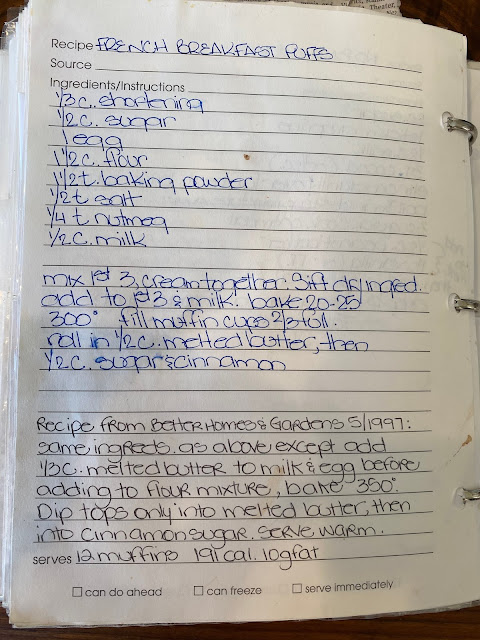 Recipe FRENCH BREAKFAST PUFFS
Source
Ingredients/Instructions
1/3 c. shortening
1/2 c. sugar
1 egg
1 1/2 c. flour
1 1/2 t. baking powder
1/2 t salt
1/4 t nutmeg
1/2 c. milk
mix 1st 3, cream together. Sift dry ingred.
add to 1st 3 & milk. bake 20-25
300° fill muffin cups 2/3 full.
roll in 1/2 c. melted butter, then
1/2 c. sugar & cinnamon
Recipe from Better Homes & Gardens 5/1997:
same ingreds. as above except add
1/3 c. melted butter to milk & egg before
adding to flour mixture, bake 350°
Dip tops only into melted butter, then
into cinnamon sugar. Serve warm.
serves 12 muffins 191 cal. 10g fat
can do ahead can freeze serve immediately